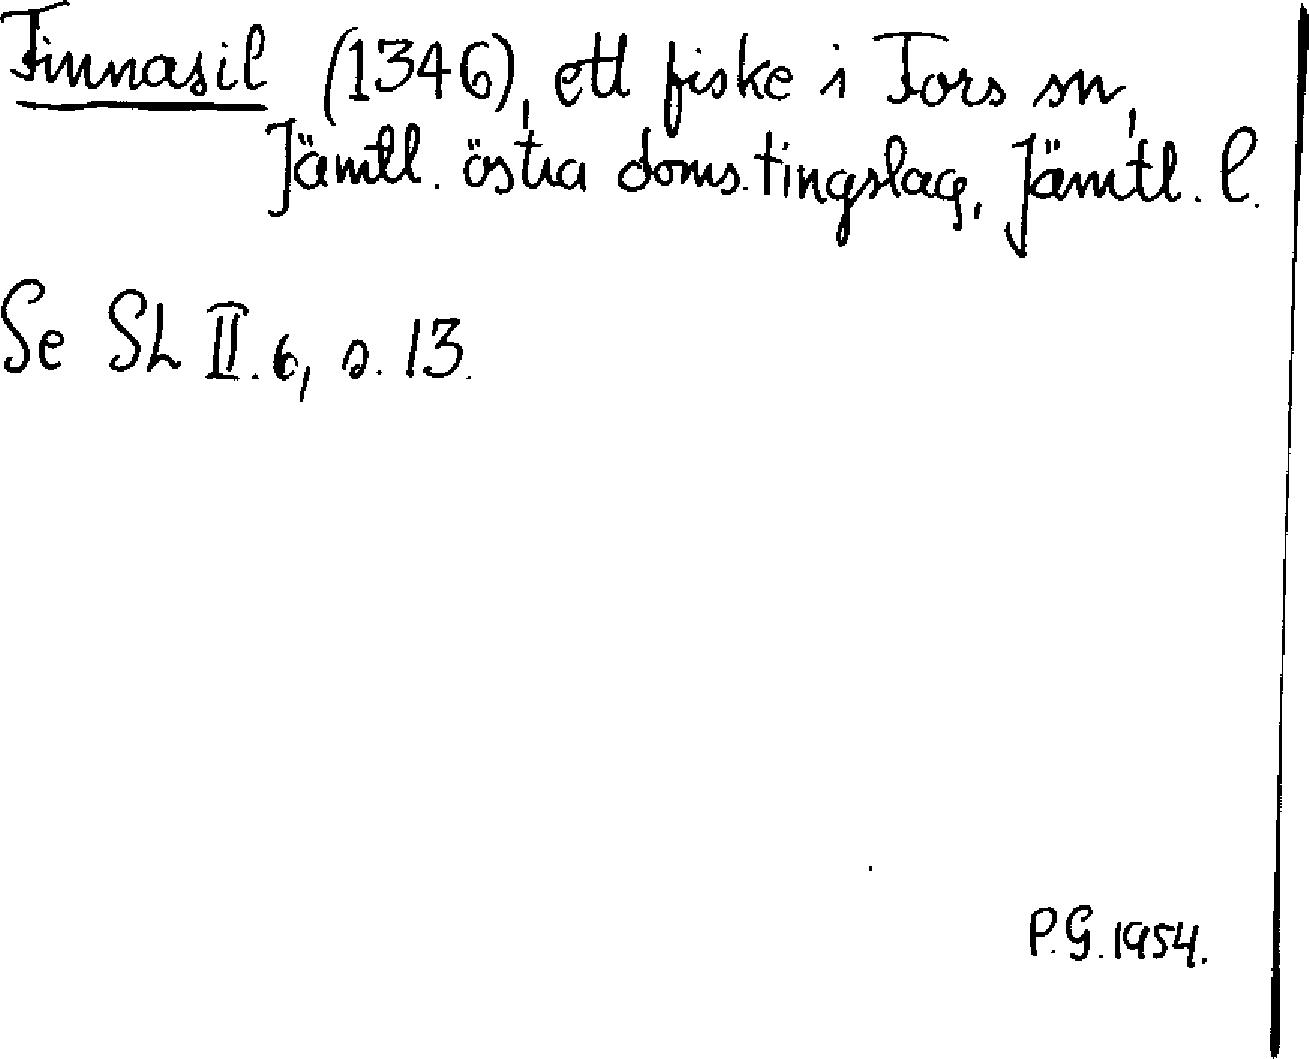 Finnasil (1346), ett fiske i Fors sn,
Jämtl. östra doms. tingslag, Jämtl. l.
Se SL II.6, s. 13.
P.G. 1954.